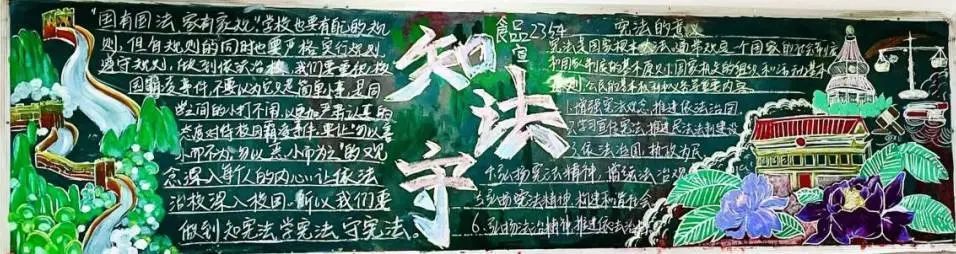 "国有国法,家有家规。"学校也要有自己的规
则,但有规则的同时也要严格实行规则,
遵守规则,做到依宗治校。我们要重视校
园霸凌事件,不要以为它只是简单小事,是同
学之间的小打不闹,以更加严肃认真的
态度对待校园霸凌事件,要让"勿以善
小而不为,勿以恶小而为之"的观
念深入每个人的内心,让依法
治校深入校园。所以我们要
做到知宪法学宪法,守宪法。
知法守
食品2364
宣
宪法的意义
宪法是国家根本大法,通常规定一个国家的社会制度
和国家制度的基本原则,国家机关的组织和活动基本
原则,公民的基本权利和义务等重要内容
1.增强宪法观念,推进依法治国
2.学习宣传宪法,推进民法法制建设
3.依法治国,执政为民
4.弘扬宪法精神,增强法治观
5.弘扬宪法精神,构建和谐社会
6.弘扬法治精神,推进依法治